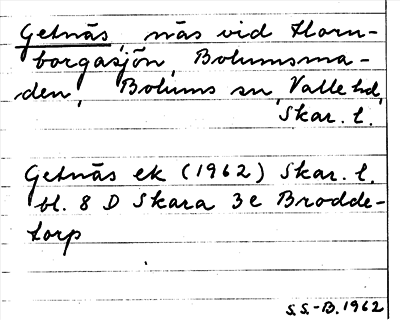 Getnäs, näs vid Horn-
borgasjön, Bolumsma-
den, Bolums sn, Valle hd,
Skar. l.
Getnäs ek (1962) Skar. l.
bl. 8 D Skara 3e Brodde-
torp
S.S.-B. 1962